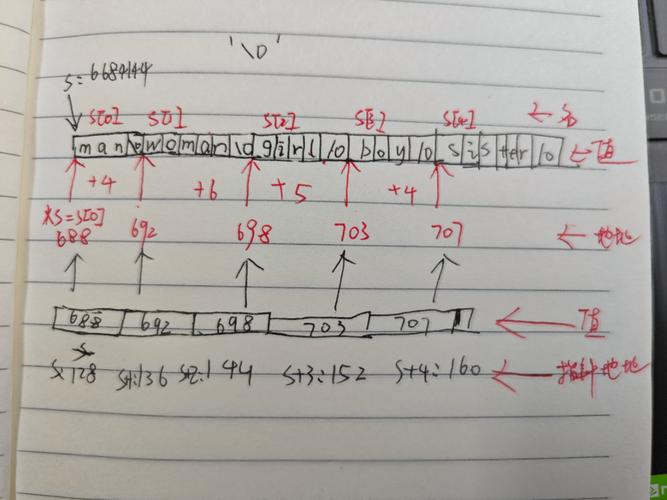 '\0'
s=6684144
s[0] s[1] s[2] s[3] s[4] ← 名
man\0woman\0girl\0boy\0sister\0 ← 值
+4 +6 +5 +4
*s=s[0]
688 692 698 703 707 ← 地址
688 692 698 703 707 ← 值
s:128 s+1:136 s+2:144 s+3:152 s+4:160 ← 指针地址